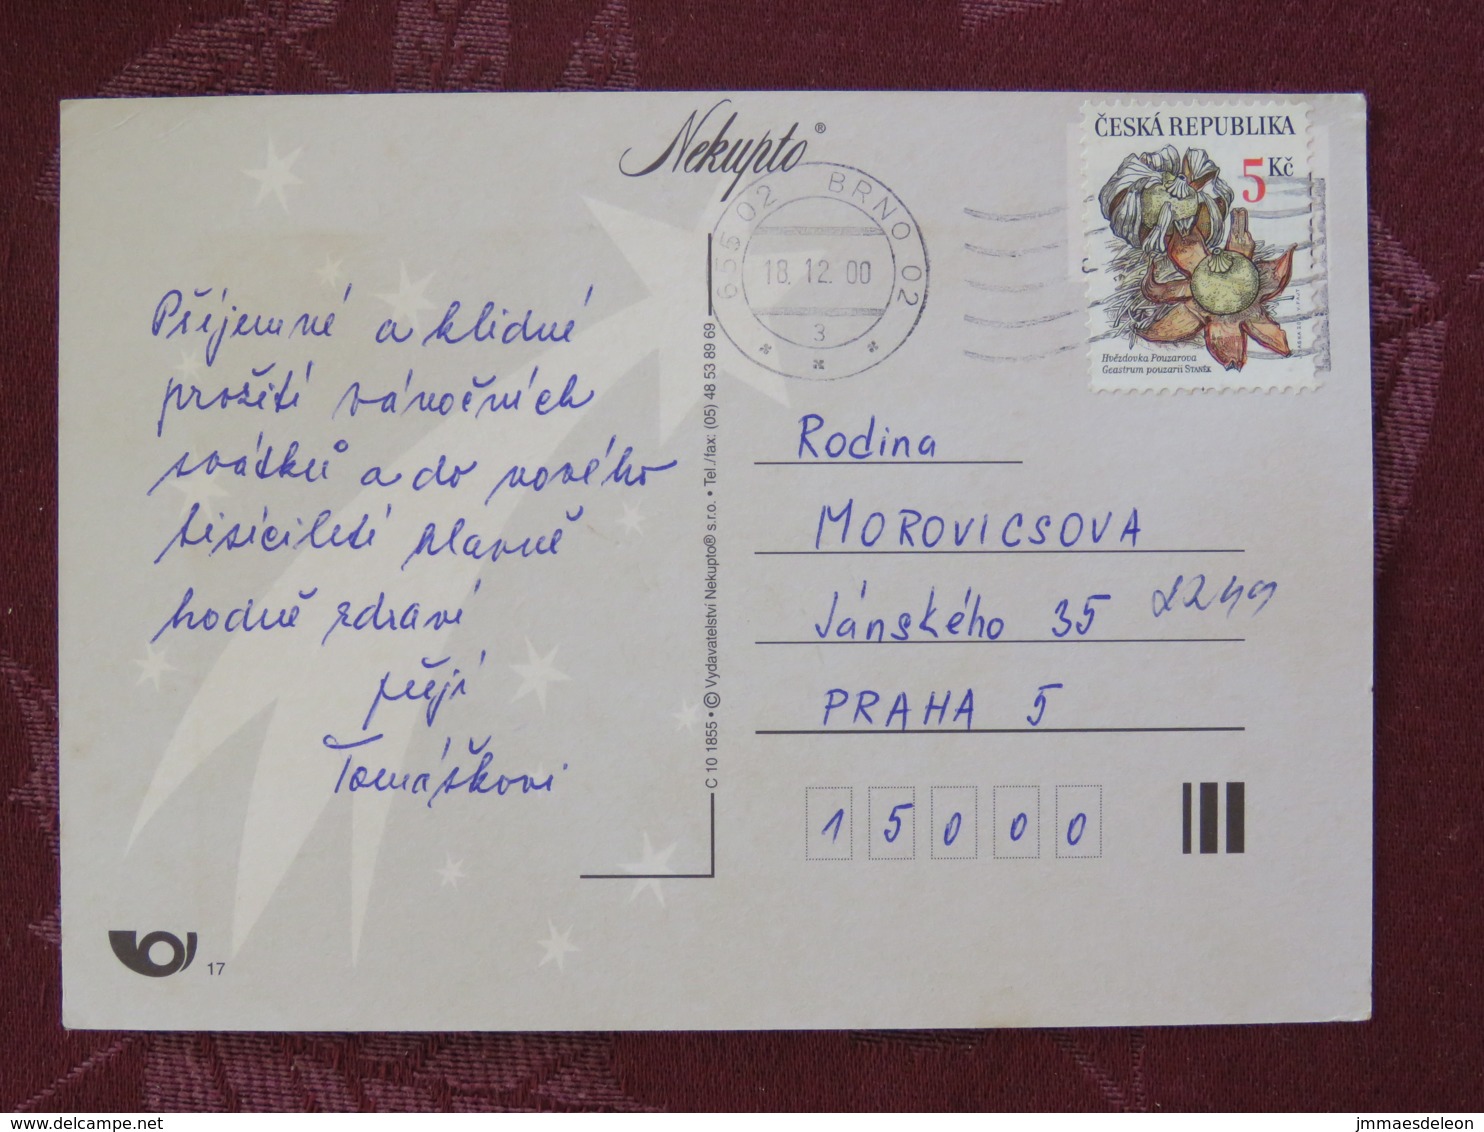 Nekupto®
ČESKÁ REPUBLIKA
5 Kč
Hvězdovka Pouzarova
Geastrum pouzarii STANĚK
655 02 BRNO 02
18. 12. 00
3
Příjemné a klidné
prožití vánočních
svátků a do nového
tisíciletí hlavně
hodně zdraví
přejí
Tomáškovi
C 10 1855 • © Vydavatelství Nekupto® s.r.o. • Tel./fax: (05) 48 53 89 69
Rodina
MOROVICSOVA
Jánského 35
2249
PRAHA 5
1 5 0 0 0
17
delcampe.net
jmmaesdeleon